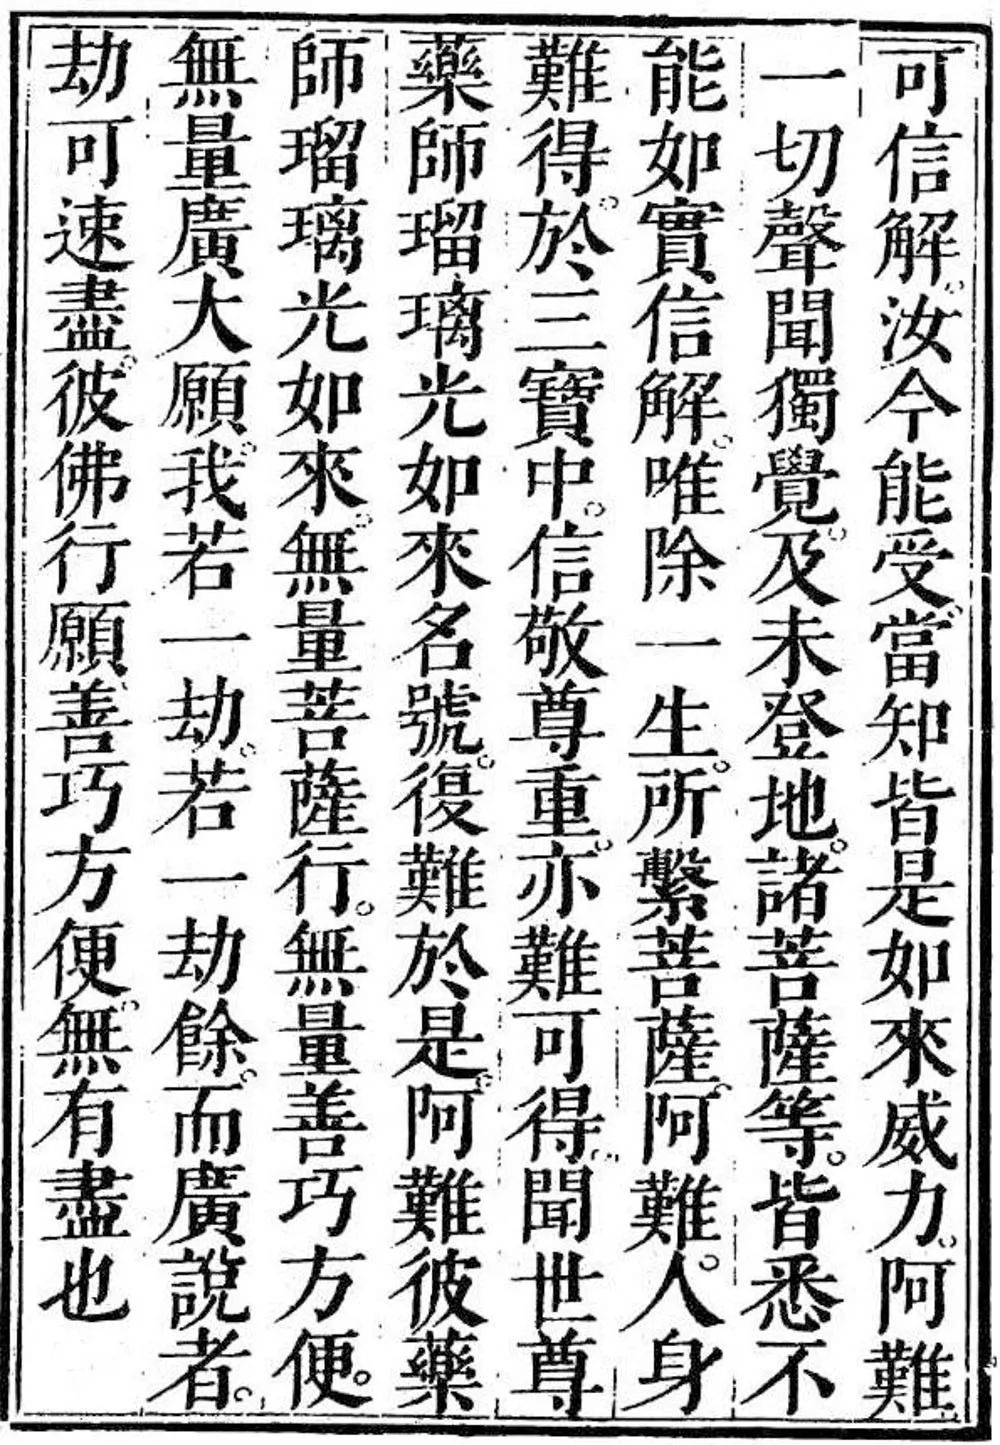 可信解。汝今能受。當知皆是如來威力。阿難。
一切聲聞獨覺。及未登地。諸菩薩等。皆悉不
能如實信解。唯除一生。所繫菩薩。阿難。人身
難得。於三寶中。信敬尊重。亦難可得。聞世尊
藥師瑠璃光如來名號。復難於是。阿難彼藥
師瑠璃光如來。無量菩薩行。無量善巧方便。
無量廣大願。我若一劫。若一劫餘。而廣說者。
劫可速盡。彼佛行願善巧方便。無有盡也